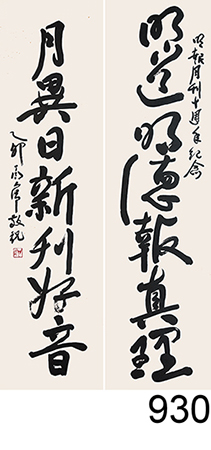 明報月刊十週年紀念
明道明德報真理
月異日新刊好音
乙卯敬祝
930